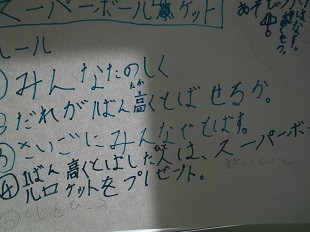 スーパーボールロケット
ルール
みんなたのしく
だれが1ばん高くとばせるか。
③さいごにみんなでとばす。
④1ばん高くとばした人は、スーパーボー
ルロケットをプレゼント。